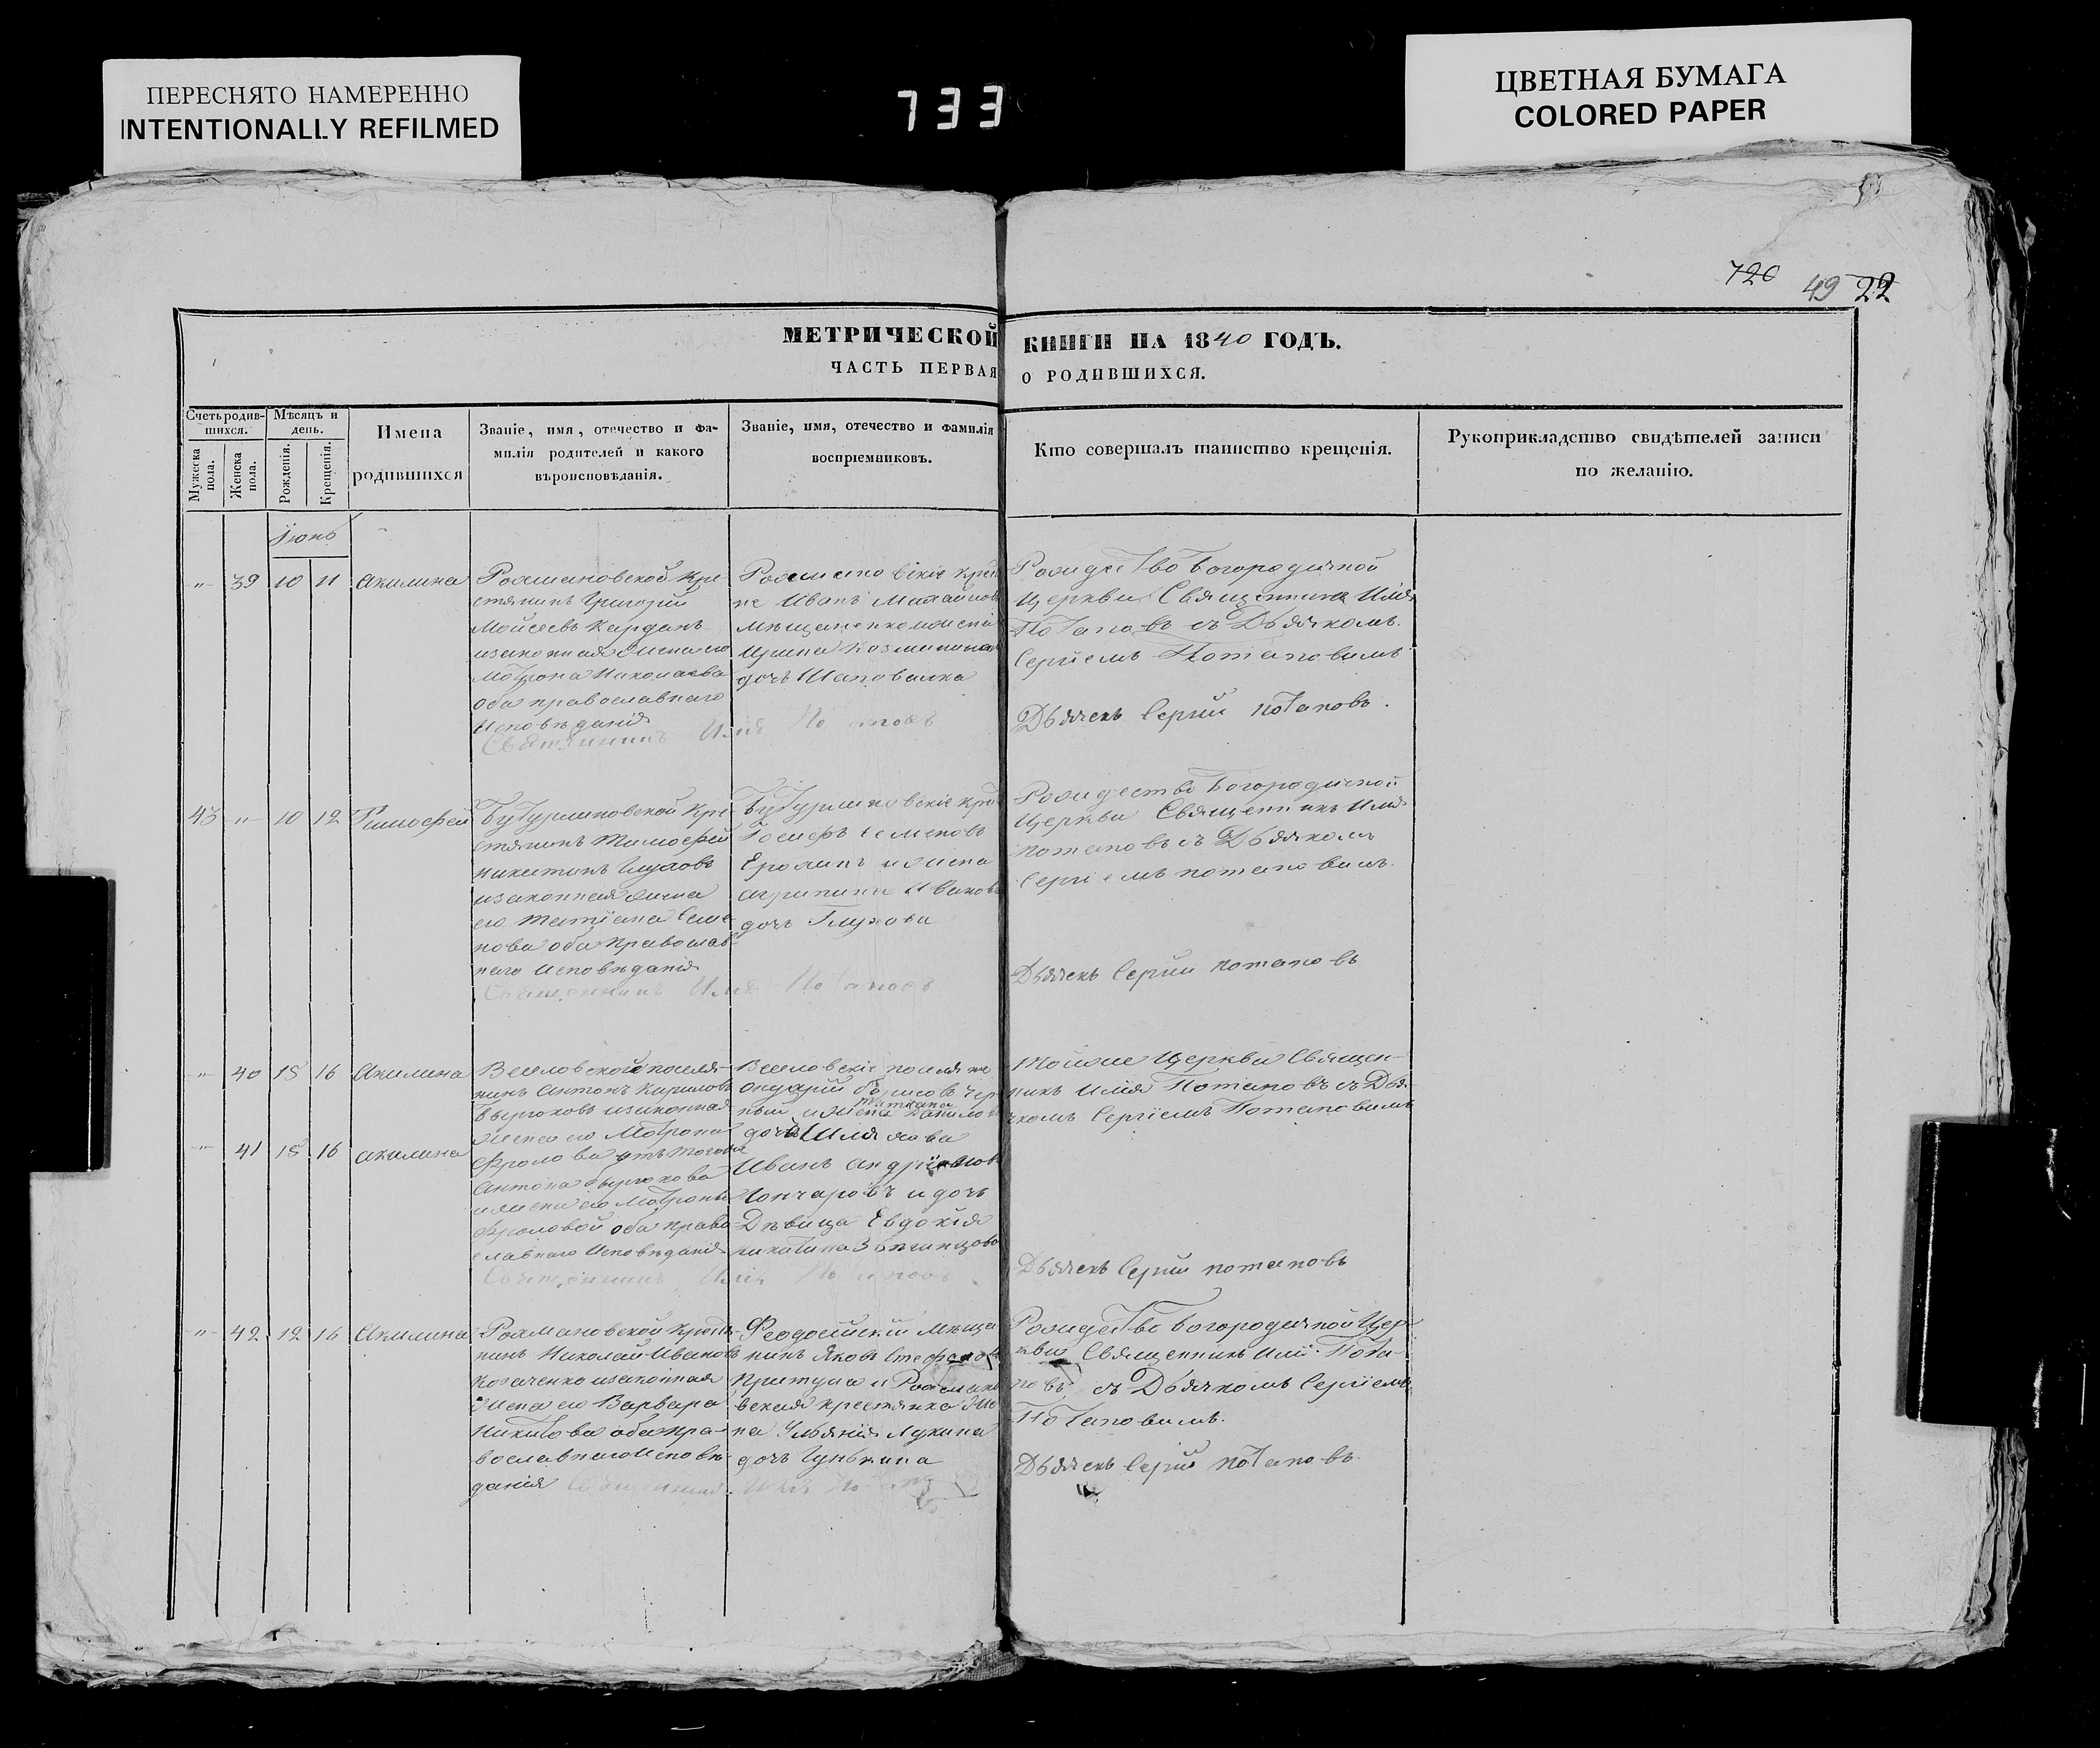 ПЕРЕСНЯТО НАМЕРЕННО
INTENTIONALLY REFILMED
733
ЦВЕТНАЯ БУМАГА
COLORED PAPER
720 49 22
МЕТРИЧЕСКОЙ КНИГИ НА 1840 ГОДЪ.
ЧАСТЬ ПЕРВАЯ О РОДИВШИХСЯ.
Счетъ родив-
шихся.
Мужеска
пола.
Женска
пола.
Мѣсяцъ и
день.
Рожденія.
Крещенія.
Имена
родившихся
Званіе, имя, отечество и фа-
милія родителей и какого
вѣроисповѣданія.
Званіе, имя, отечество и фамилія
воспріемниковъ.
Кто совершалъ таинство крещенія.
Рукоприкладство свидѣтелей записи
по желанію.
Іюнь
" 39 10 11 Акилина
Рахмановской Кре-
стянинъ Григорій
Мойсеевъ Кардашъ
изаконная жена его
Мотрона Николаева
оба православнаго
Исповѣданія
Священникъ Илія Потаповъ
не Иванъ
Ирина
дочь Шаповалка
Рождество Богородичной
Церкви Священникъ Илія
Потаповъ съ Дьячкомъ
Сергіемъ Потаповимъ
Дьячекъ Сергій Потаповъ.
43 " 10 12 Тимофей
Бутурлиновской Кре-
стянинъ Тимофей
Никитинъ Глуховъ
изаконная жена
его Татіана Семе-
нова оба Православ-
наго Исповѣданія
Священникъ Илія Потаповъ
Іосифъ Семеновъ
и жена
Агрипина Иванова
дочь Глухова
Рождество Богородичной
Церкви Священникъ Илія
Потаповъ съ Дьячкомъ
Сергіемъ Потаповимъ.
Дьячекъ Сергій Потаповъ
" 40 15 16 Акилина
поселя-
нинъ Антонъ Кириловъ
изаконная
жена его Мотрона
" 41 15 16 Акилина
Фролова отъ тогоже
Антона
и жени его Мотрони
Фроловой оба право-
славнаго Исповѣданія
Священникъ Илія Потаповъ
Татіана
дочь Шляхова
Иванъ Андріановъ
Гончаровъ и дочь
Дѣвица Евдокія
Тойже Церкви Священ-
никъ Илія Потаповъ съ Дья-
чкомъ Сергіемъ Потаповимъ
Дьячекъ Сергій Потаповъ
" 42 12 16 Акилина
Рахмановской Крестя-
нинъ Николай Ивановъ
Косаченко изаконная
жена его Варвара
Никитова оба пра-
вославнаго Исповѣ-
данія Священникъ Илія
Феодосійскій Мѣща-
нинъ Яковъ Стефановъ
Притула и
вская крестянка
на Ульянія Лукина
дочь Гунькина
Рождество Богородичной Цер-
кви Священникъ Илій Пота-
повъ съ Дьячкомъ Сергіемъ
Потаповимъ.
Дьячекъ Сергій Потаповъ